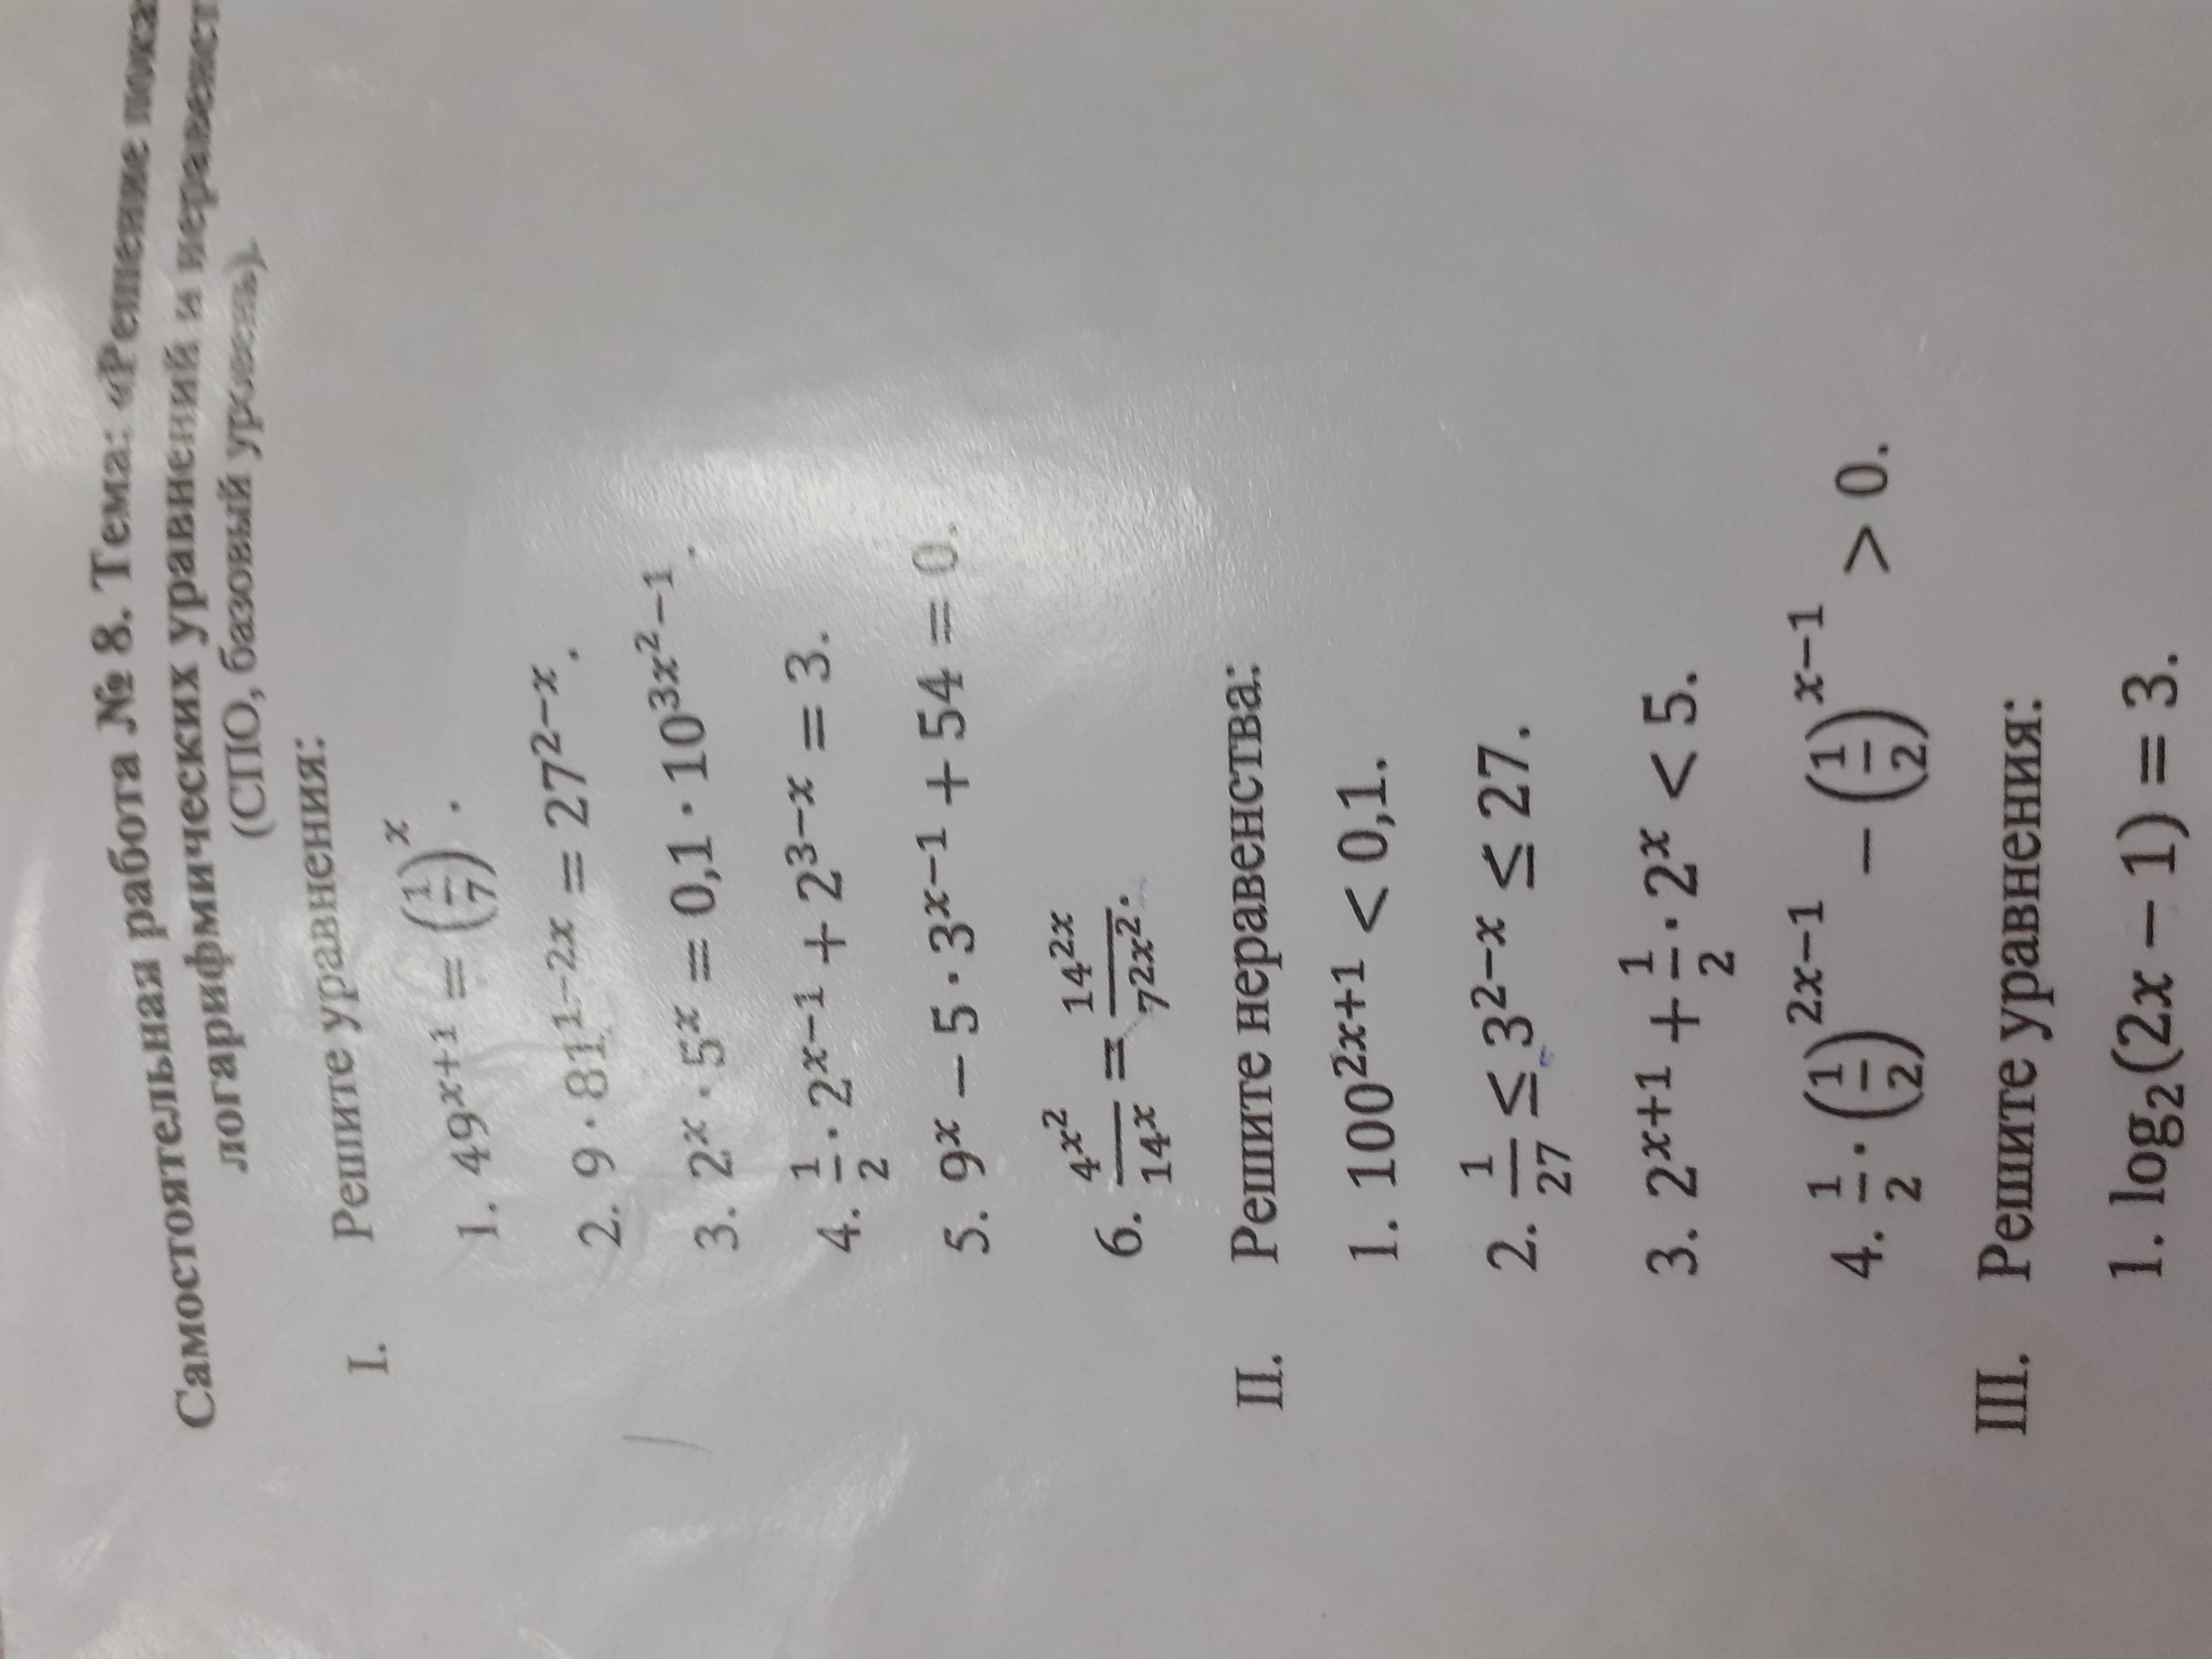 Самостоятельная работа № 8. Тема: «Решение
логарифмических уравнений и
(СПО, базовый уровень).
I. Решите уравнения:
1. 49^{x+1} = (1/7)^x.
2. 9 · 81^{1−2x} = 27^{2−x}.
3. 2^x · 5^x = 0,1 · 10^{3x^2−1}.
4. 1/2 · 2^{x−1} + 2^{3−x} = 3.
5. 9^x − 5 · 3^{x−1} + 54 = 0.
6. 4^{x^2}/14^x = 14^{2x}/7^{2x^2}.
II. Решите неравенства:
1. 100^{2x+1} < 0,1.
2. 1/27 ≤ 3^{2−x} ≤ 27.
3. 2^{x+1} + 1/2 · 2^x < 5.
4. 1/2 · (1/2)^{2x−1} − (1/2)^{x−1} > 0.
III. Решите уравнения:
1. log_2(2x − 1) = 3.